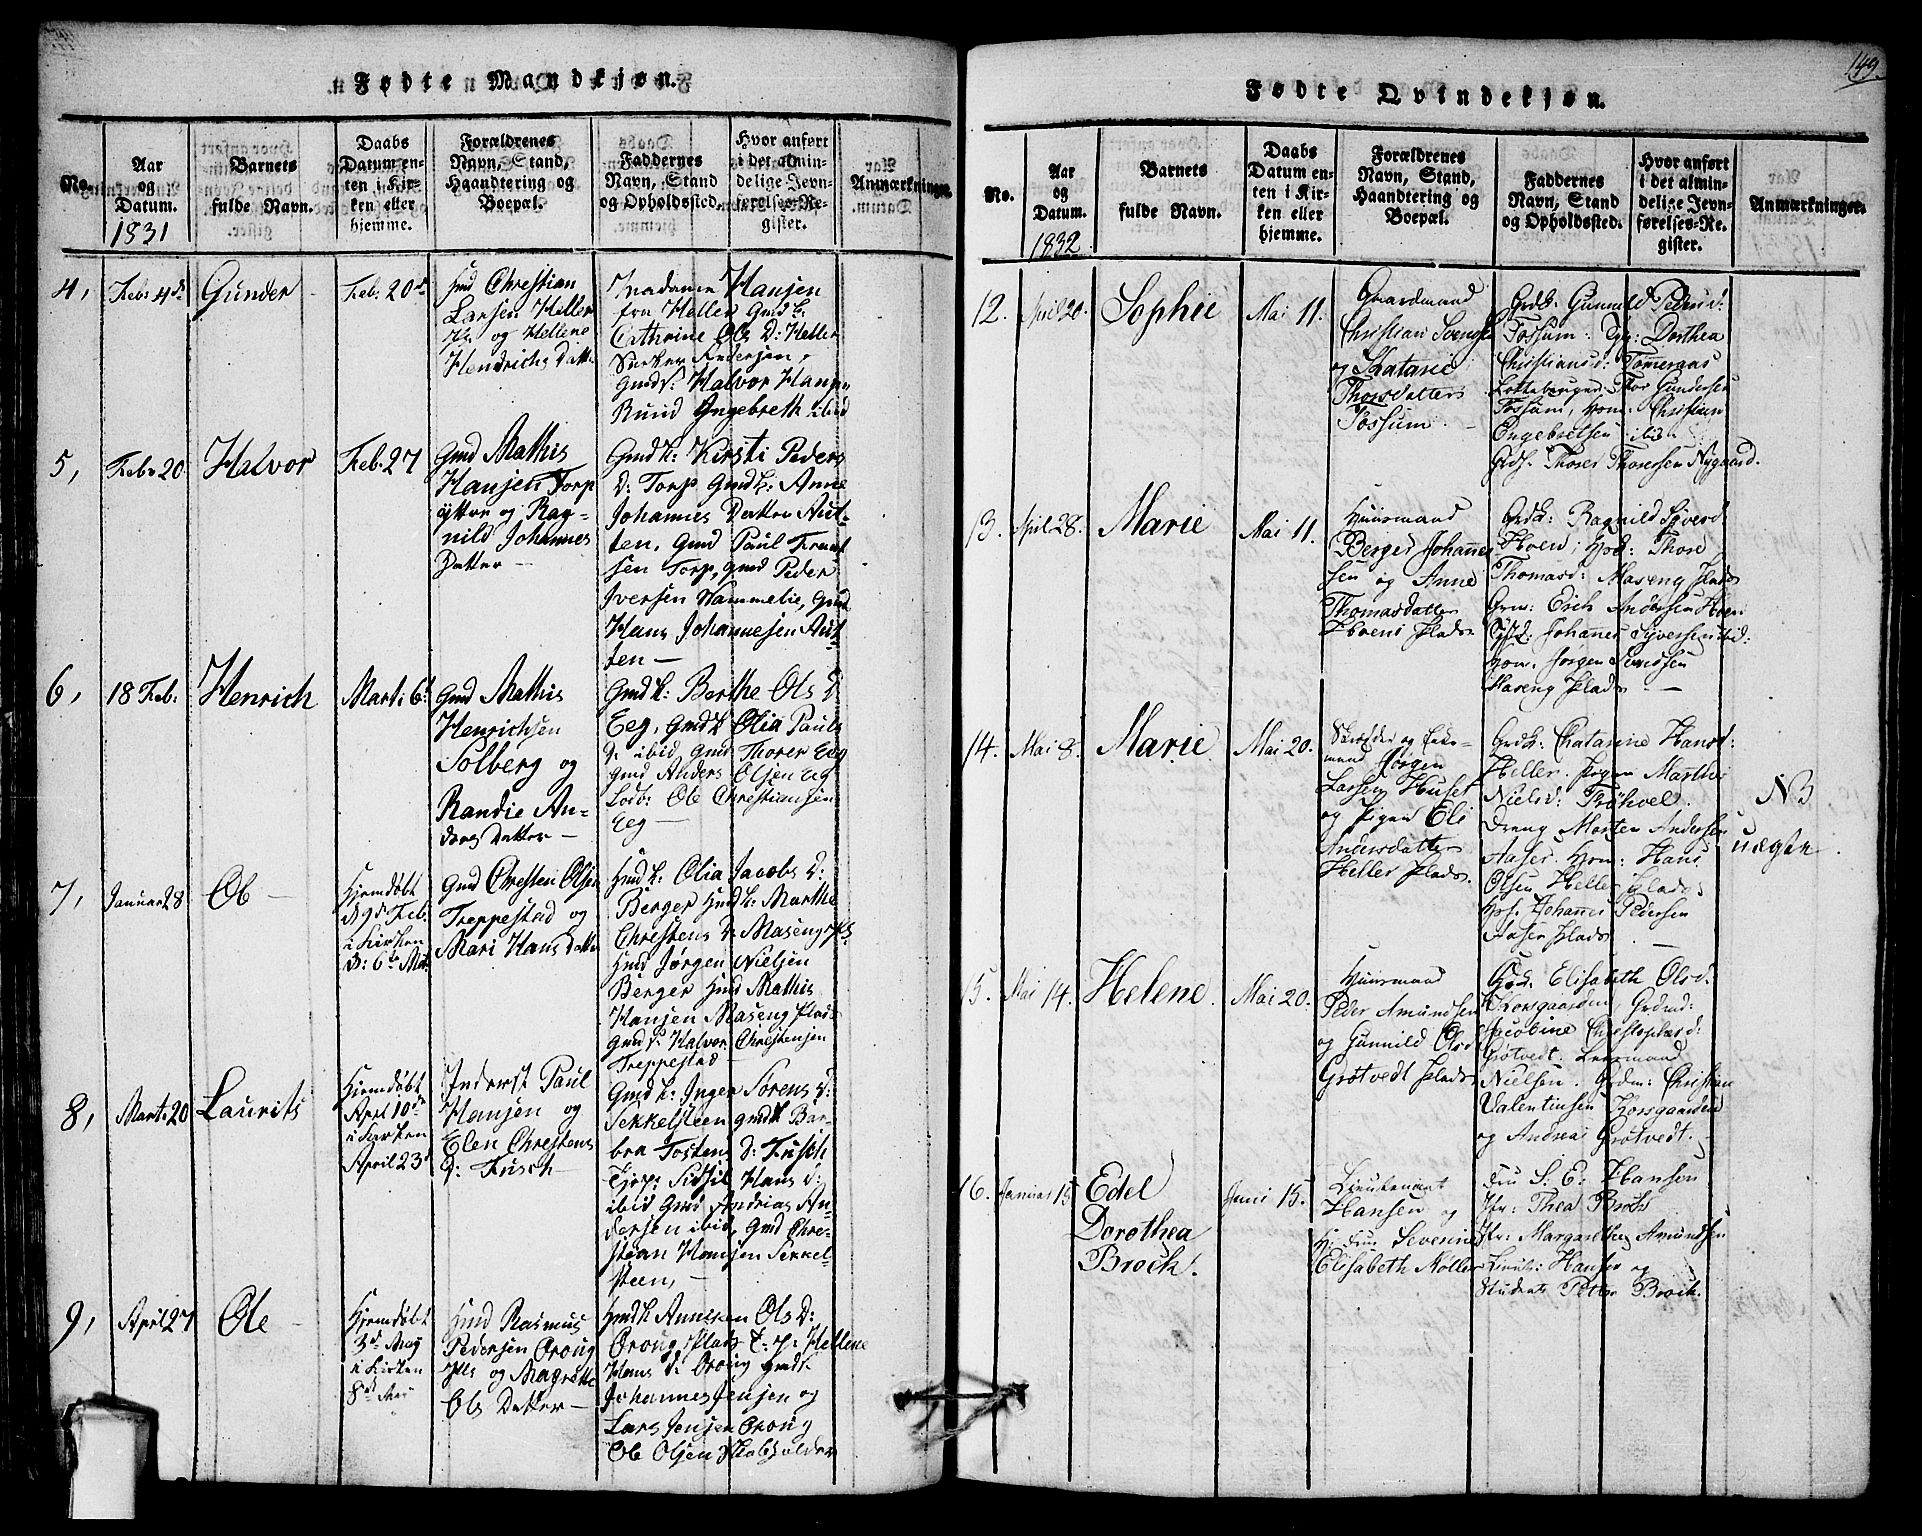 149.
Fødte Mandkjøn.
No.
Aar
og
Datum.
1831
Barnets
fulde Navn.
Daabs
Datum en-
ten i Kir-
ken eller
hjemme.
Forældrenes
Navn, Stand,
Haandtering og
Boepæl.
Faddernes
Navn, Stand
og Opholdssted.
Hvor anført
i det almin-
delige Jevn-
førelses-Re-
gister.
Anmærkninger.
4,
Feb: 4de
Gunder
Feb: 20de
Christian
Larsen Heller
og Hellene
Hendrichs Datter
Madame Hansen
fra Heller Gmdk:
Cathrine Ols D: Heller
Pedersen,
Gmds: Halvor Hansen
Rund Ingebreth ibid
5,
Feb: 20
Halvor
Feb: 27
Gmd Mathis
Hansen Torp
yttre og Rag-
nild Johannes
Datter
Gmdk: Kirsti Peders
D: Torp Gmdk: Anne
Johannes Datter Aut-
ten, Gmd Paul
sen Torp, Gmd Peder
Iversen Hammelie, Gmd
Hans Johannesen Aut-
ten
6,
18 Feb.
Henrich
Mart: 6t
Gmd Mathis
Henrichsen
Solberg og
Randie An-
ders Datter
Gmdk: Berthe Ols D
Eeg, Gmdk Olia Pauls
D ibid Gmd Thorer Eeg
Gmd Anders Olsen Eeg
Ole Christiansen
Eeg
7,
Januar 28
Ole
Hjemdøbt
D 9de Feb.
i Kirken
D: 6te Mar
Gmd Chresten Olsen
Treppestad og
Mari Hans Datter
Hmdk: Olia Jacobs D:
Berger Hmdk: Marthe
Christens D Maseng Pls
Hmd Jørgen Nielsen
Berger Hmd Mathis
Hansen Maseng Plads
Gmds: Halvor Christensen
Treppestad
8,
Mart: 20
Laurits
Hjemdøbt
Apri 10de
i Kirken
April 23d
Inderst Paul
Hansen og
Elen Chrestens
D: Fusch
Gmdk: Inger Sørens D:
Sekkelsteen Gmdk Bar-
bra Tostens D: Fusch
Sidsil Hans D:
ibid Gmd Andrias An-
dersen ibid, Gmd Chre-
stean Hansen Sekkel-
steen,
9,
April 27
Ole
Hjemdøbt
3d May
i Kirken
8de Mai
Hmd Rasmus
Pedersen Oroug
Pls og Magrette
Ols Datter
Hmdk Annisken Ols D:
Oroug Plads Hellene
Hans D: Oroug Gmds:
Johannes Jensen og
Lars Jensen Oroug
Ole Olsen
Fødte Qvindekjøn.
No.
Aar
og
Datum.
1832
Barnets
fulde Navn.
Daabs
Datum en-
ten i Kir-
ken eller
hjemme.
Forældrenes
Navn, Stand,
Haandtering og
Boepæl.
Faddernes
Navn, Stand
og Opholdssted.
Hvor anført
i det almin-
delige Jevn-
førelses-Re-
gister.
Anmærkninger.
12.
April 20.
Sophie
Mai 11.
Gaardmand
Christian Svends
og Katarie
Thorsdatter
Fossum.
Grdk: Gunnild Pedersd:
Fossum: Pg: Dorthea
Christiansd: Tømeraas
Thor Gundersen
Fossum, Christian
Engebretsen ibid
Grds. Thores Thoresen Nygaard.
13.
April 28.
Marie
Mai 11.
Huusmand
Berger Johannes
sen og Anne
Thomasdatter
Hoens Plads
Grdk: Ragnild Syverd
Hoen; Thore
Thomasd: Maseng Plads
Grm: Erich Andersen Hoen
Johannes Syversen ibid:
Hom. Jørgen
Maseng Plads
14.
Mai 8.
Marie
Mai 20.
og
mand Jørgen
Larsen Huset
og Pigen Eli
Andersdatter
Heller Plads.
Grdk: Chatarine Hansd:
Heller. Pigen Marthe
Nielsd: Trøhvel.
Dreng Morten Andersen
Aaser. Hom: Hans
Olsen Heller Plads
Johannes Pedersen
Aaser Plads
NB
uægte.
15.
Mai 14.
Helene
Mai 20.
Huusmand
Peder Amundsen
og Gunnild Olsd
Grøtvedt Plads
Elisabeth Olsd:
Korsgaarden,
Jacobine Christophersd:
Grøtvedt. Leensmand
Nielsen. Grdm: Christian
Valentinsen Korsgaarden
og Andreas Grøtvedt.
16.
Januar 15
Edel
Dorothea
Brock.
Juni 15.
Lieutenant
Hansen og
Frue Severine
Elisabeth Møller
Frue S. E. Hansen
Jfr: Thea Brock
Jfr: Margarethe Amundsen
Lieut: Hansen og
Student Petter Brock.